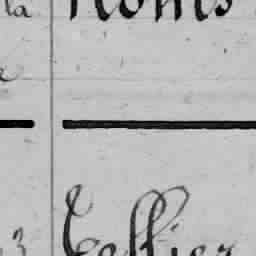 la Noms
3 Tellier